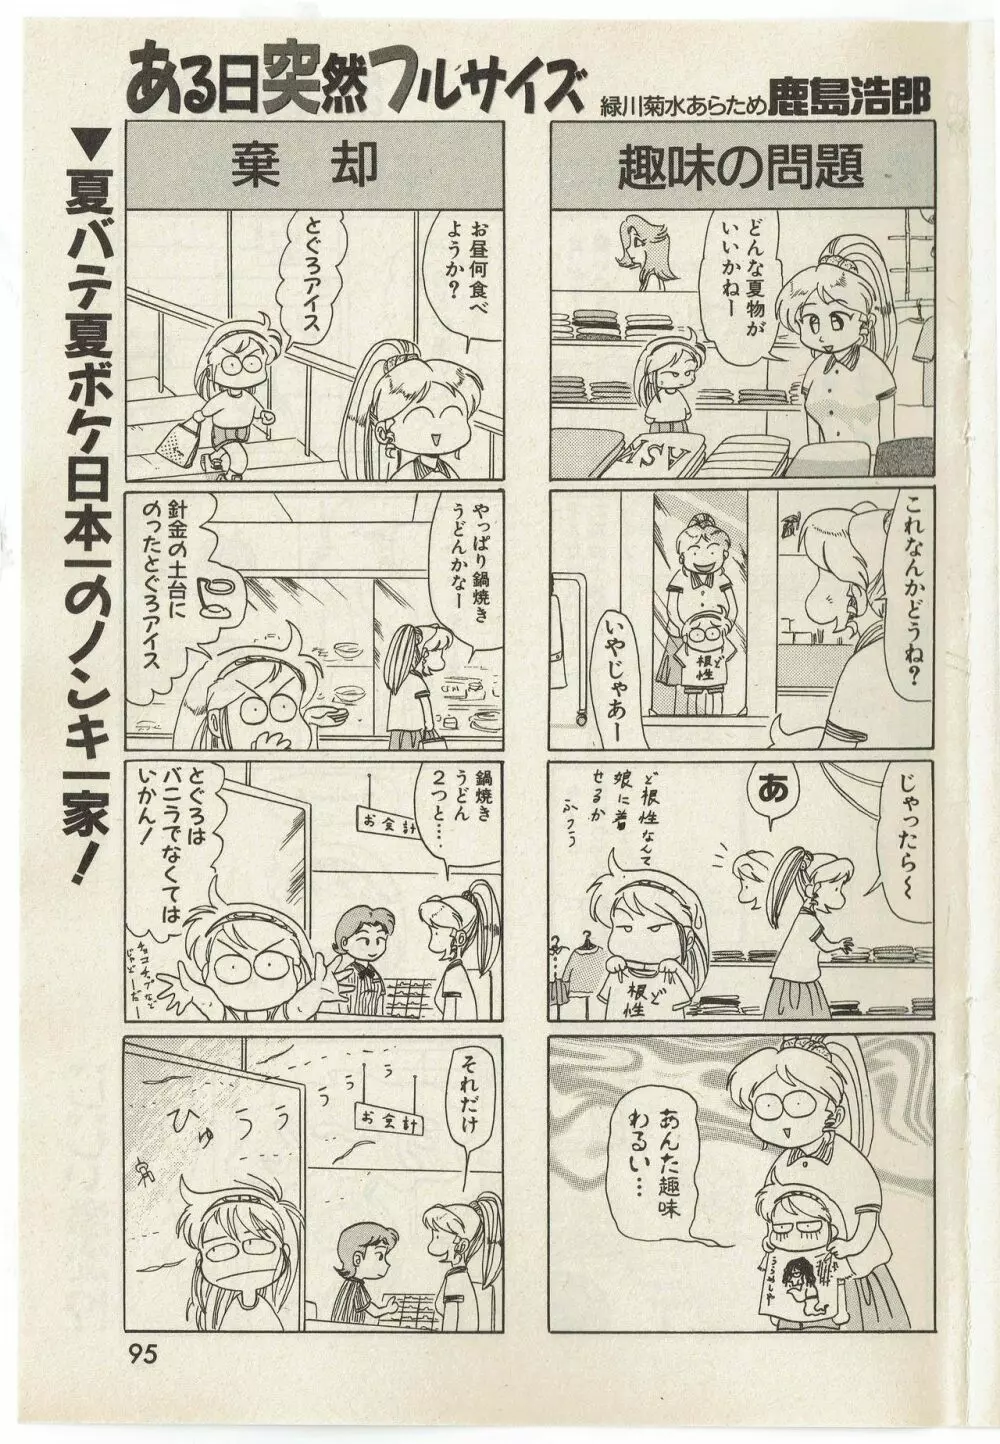 ある日突然フルサイズ
緑川菊水あらため鹿島浩郎
▼夏バテ夏ボケ日本一のノンキ一家！
趣味の問題
どんな夏物が
いいかねー
これなんかどうね？
いやじゃあー
ど
根性
じゃったら〜
あ
ど根性なんて
娘に着
せるか
ふつう
ど
根性
あんた趣味
わるい…
うらめしや
棄却
お昼何食べ
ようか？
とぐろアイス
やっぱり鍋焼き
うどんかなー
針金の土台に
のったとぐろアイス
鍋焼き
うどん
2つと……
お会計
とぐろは
バニラでなくては
いかん！
チョコチップなど
じゃどーだ
それだけ
お会計
ひゅううう
95